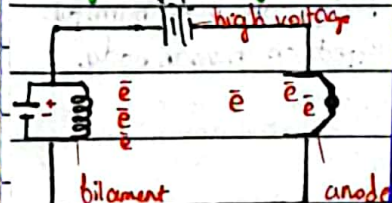 high voltage
+
-
ē ē ē ē
ē
ē
filament anode